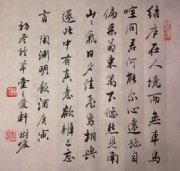 結廬在人境而無車馬
喧問君何能爾心遠地自
偏采菊東籬下悠然見南
山々氣日夕佳飛鳥相與
還此中有真意欲辨已忘
言陶淵明飲酒庚寅
初冬於草堂之軒